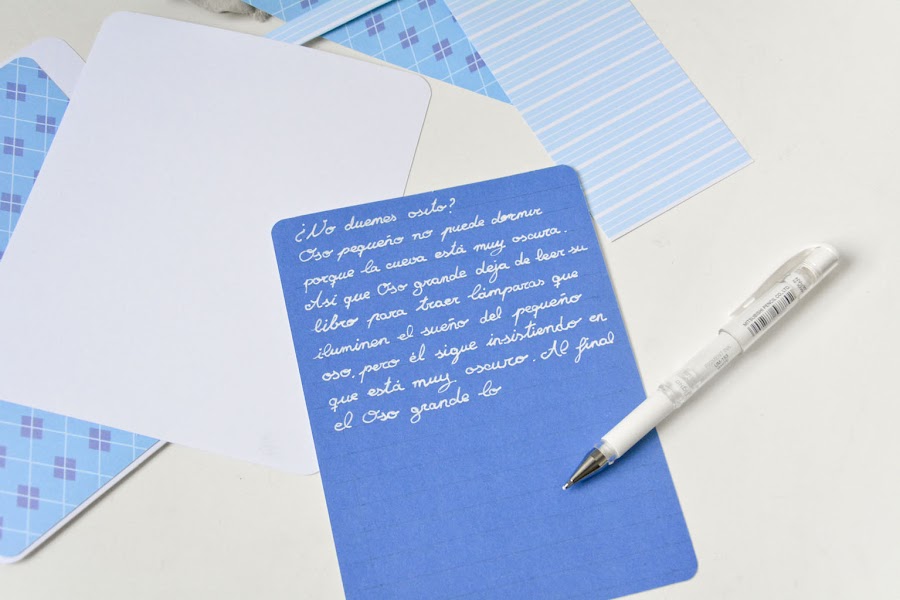 ¿No duemes osito?
Oso pequeño no puede dormir
porque la cueva está muy oscura.
Así que Oso grande deja de leer su
libro para traer lámparas que
iluminen el sueño del pequeño
oso, pero él sigue insistiendo en
que está muy oscuro. Al final
el Oso grande lo
MITSUBISHI PENCIL CO., LTD.